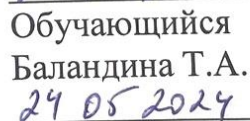 Обучающийся
Баландина Т.А.
24 05 2024